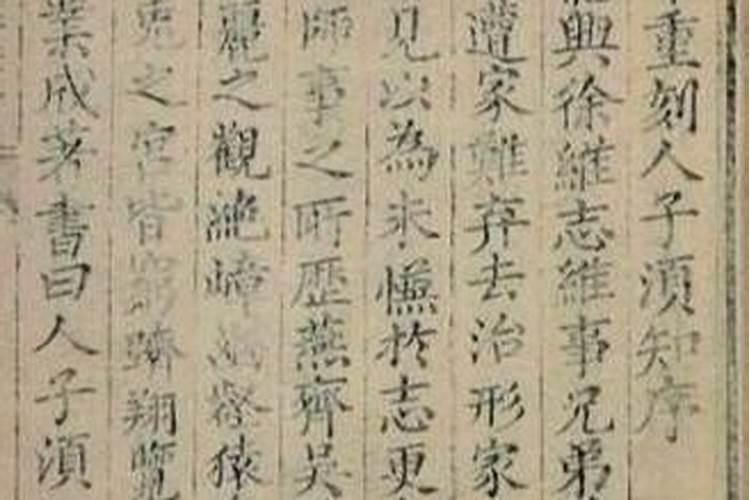 重刻人子須知序
興徐維志維事兄弟
遭家難弃去治形家
見以為未愜於志更
師事之所歷燕齊吳
麗之觀絶嶂猿
之宮皆窮躋翔覽
業成著書曰人子須